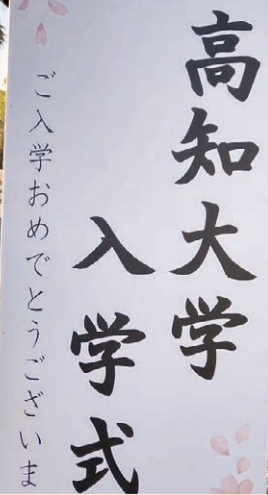 高知大学
入学式
ご入学おめでとうございま